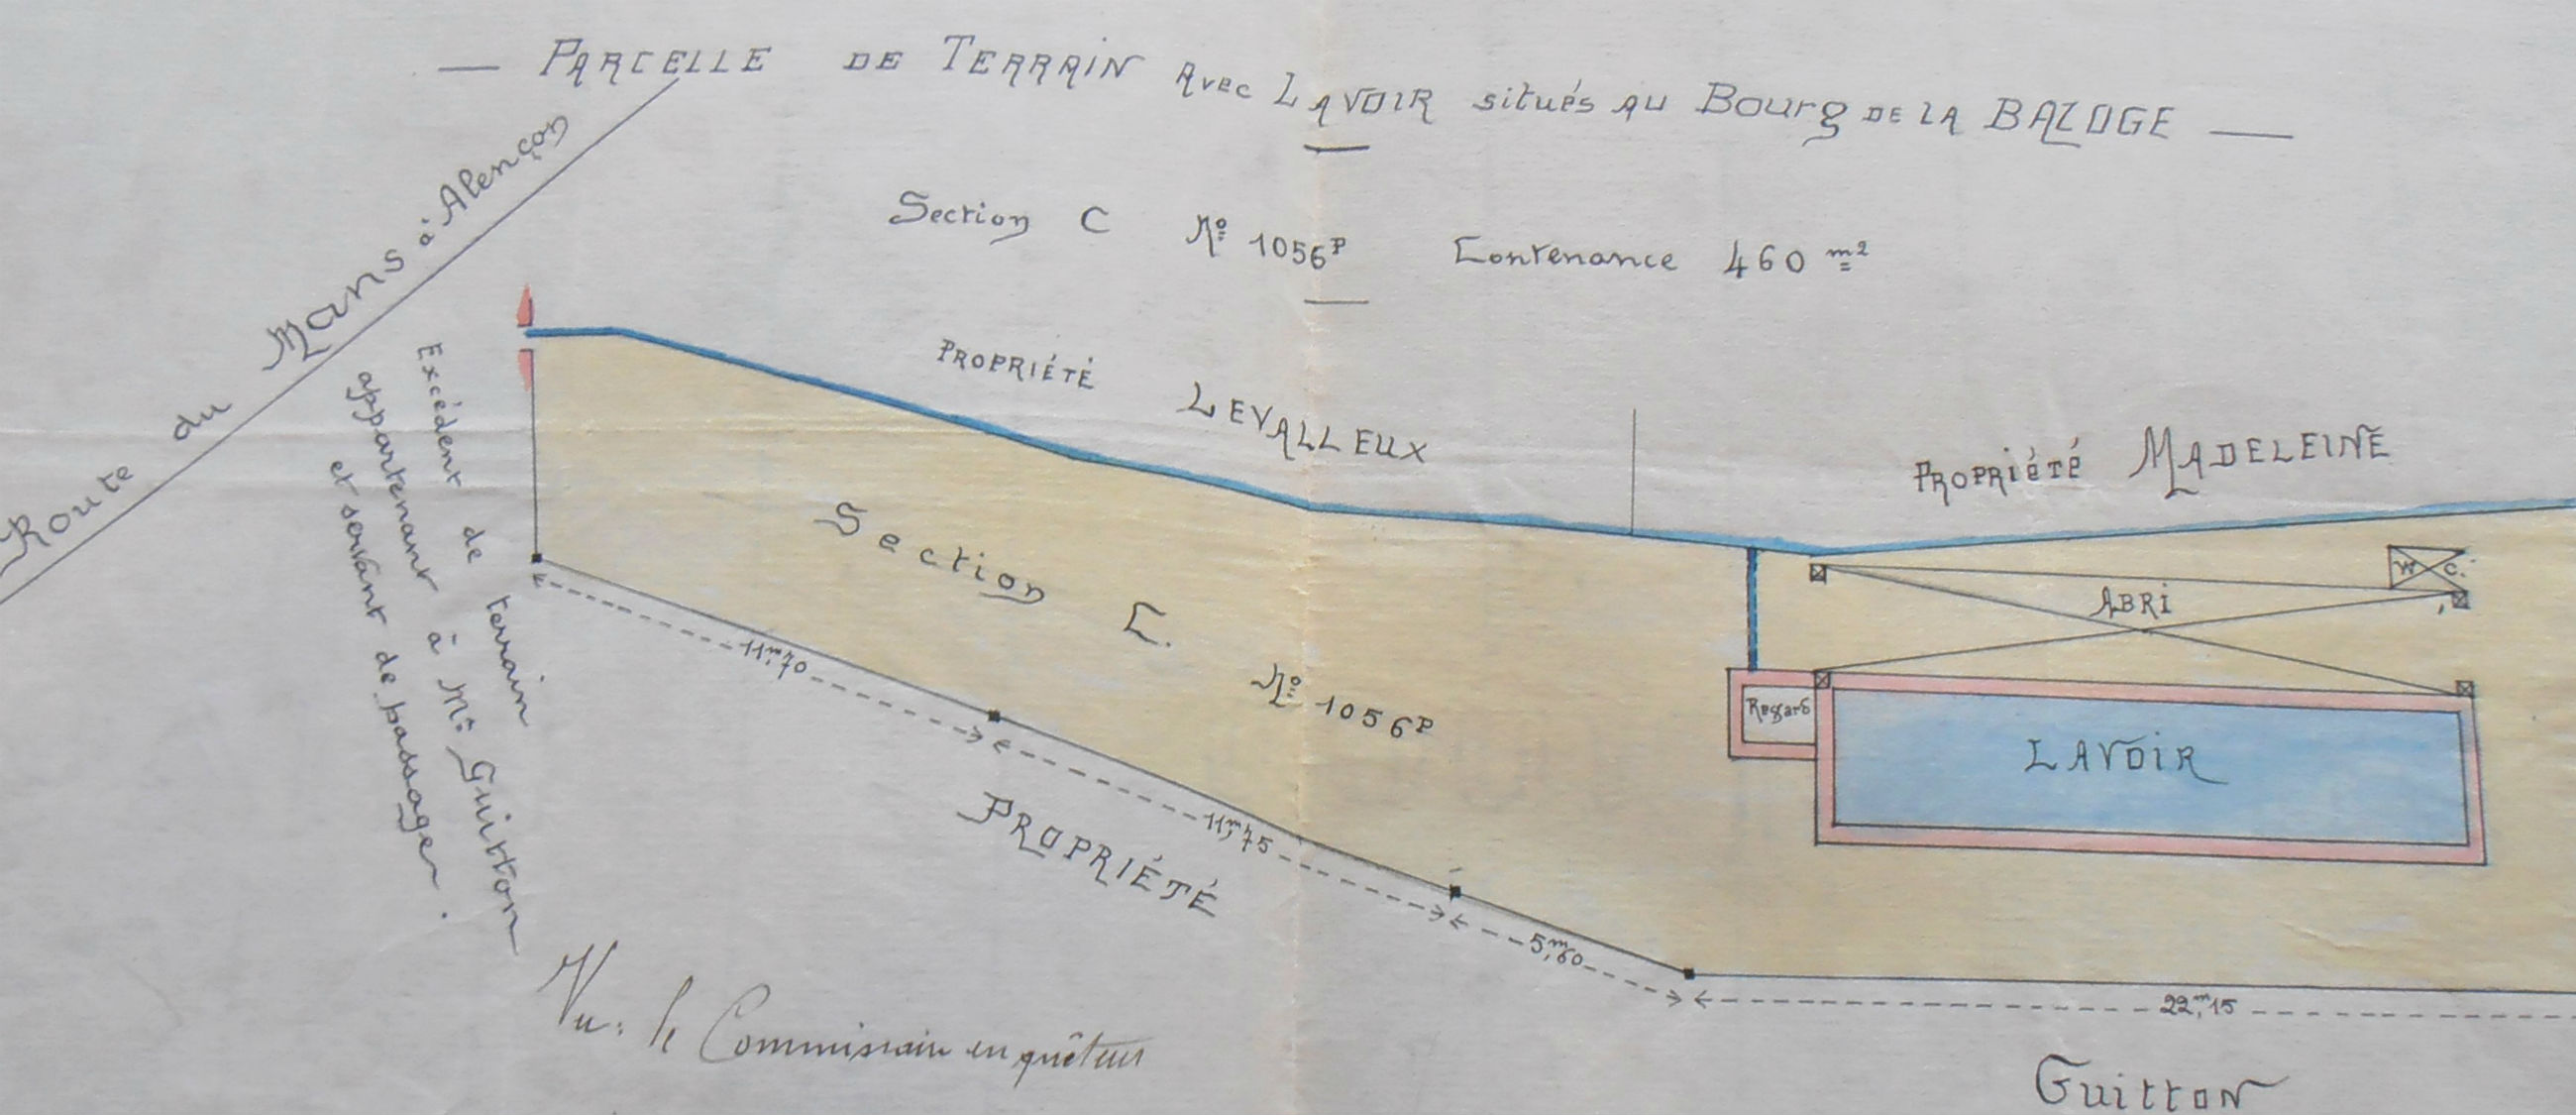 — PARCELLE DE TERRAIN Avec LAVOIR situés AU Bourg DE LA BAZOGE —
Section C Nº 1056P Contenance 460 m2
Route du Mans à Alençon
Excédent de terrain
appartenant à Mr Guitton
et servant de passage.
PROPRIÉTÉ LEVALLEUX
PROPRIÉTÉ MADELEINE
Section C. Nº 1056P
W C.
ABRI
Regard
LAVOIR
11m,70
11m,75
5m,60
22m,15
PROPRIÉTÉ
Guitton
Vu: le Commissaire enquêteur